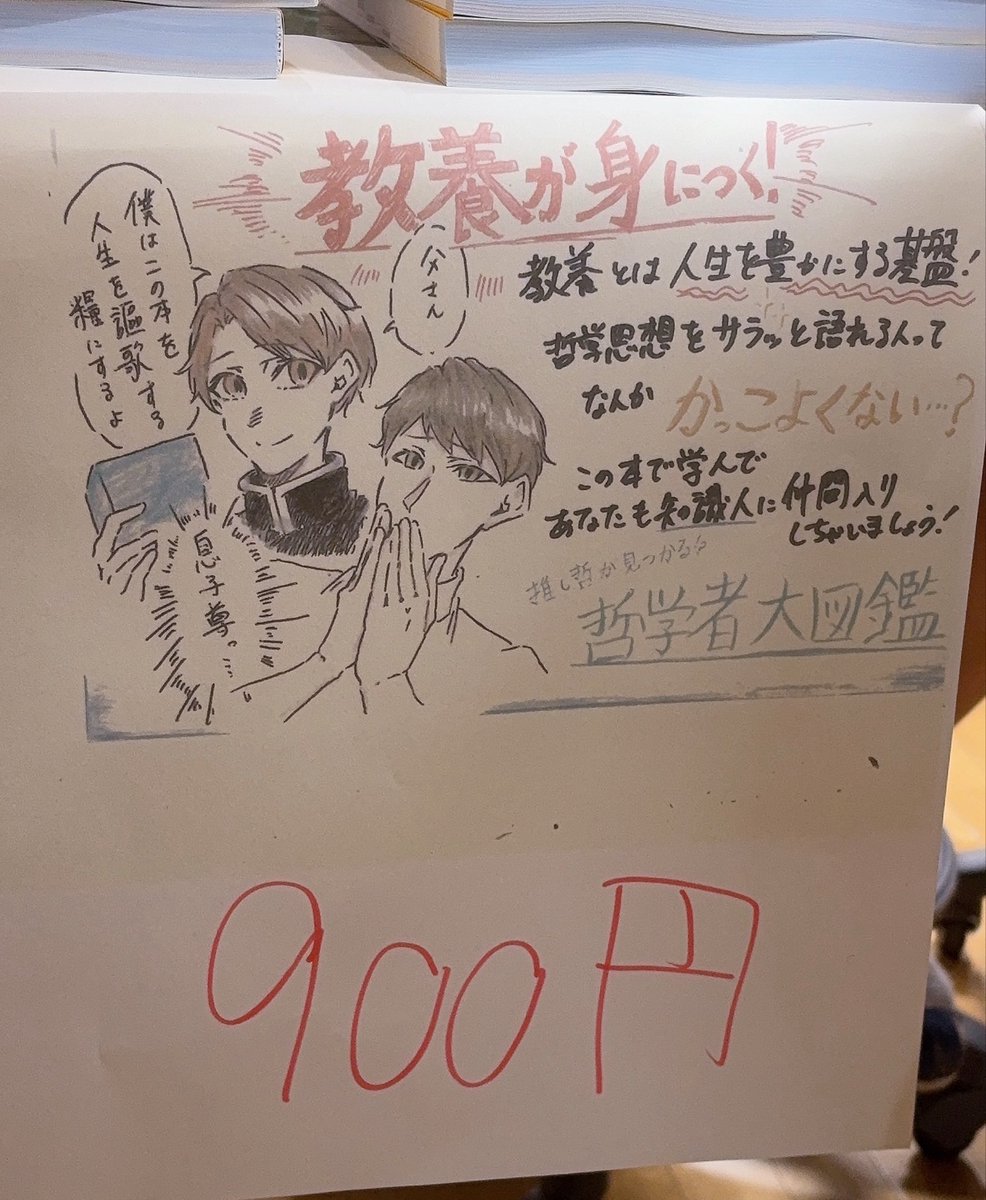 教養が身につく!
僕はこの本を
人生を謳歌する
糧にするよ
父さん
息子尊っ……
教養とは人生を豊かにする基盤!
哲学思想をサラッと語れる人って
なんか かっこよくない…?
この本で学んで
あなたも知識人に仲間入り
しちゃいましょう!
推し哲が見つかる♪
哲学者大図鑑
900円